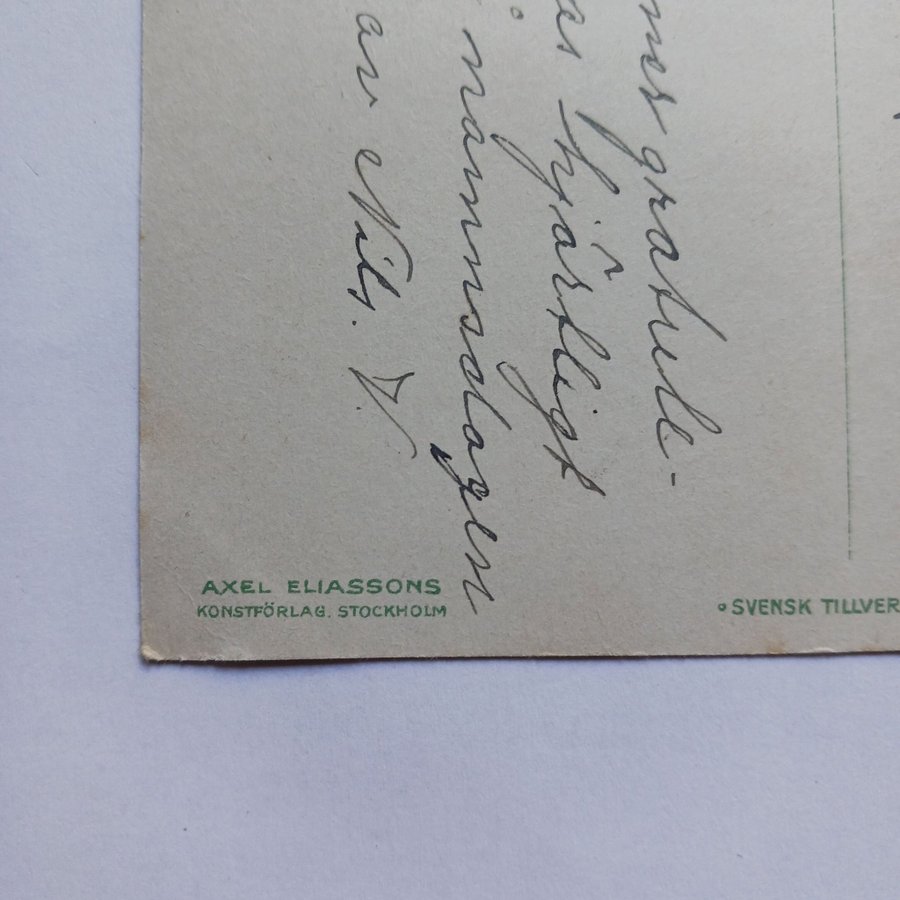 gratule-
as hjärtligt
namnsdagen
av Nils.
AXEL ELIASSONS
KONSTFÖRLAG. STOCKHOLM
SVENSK TILLVER